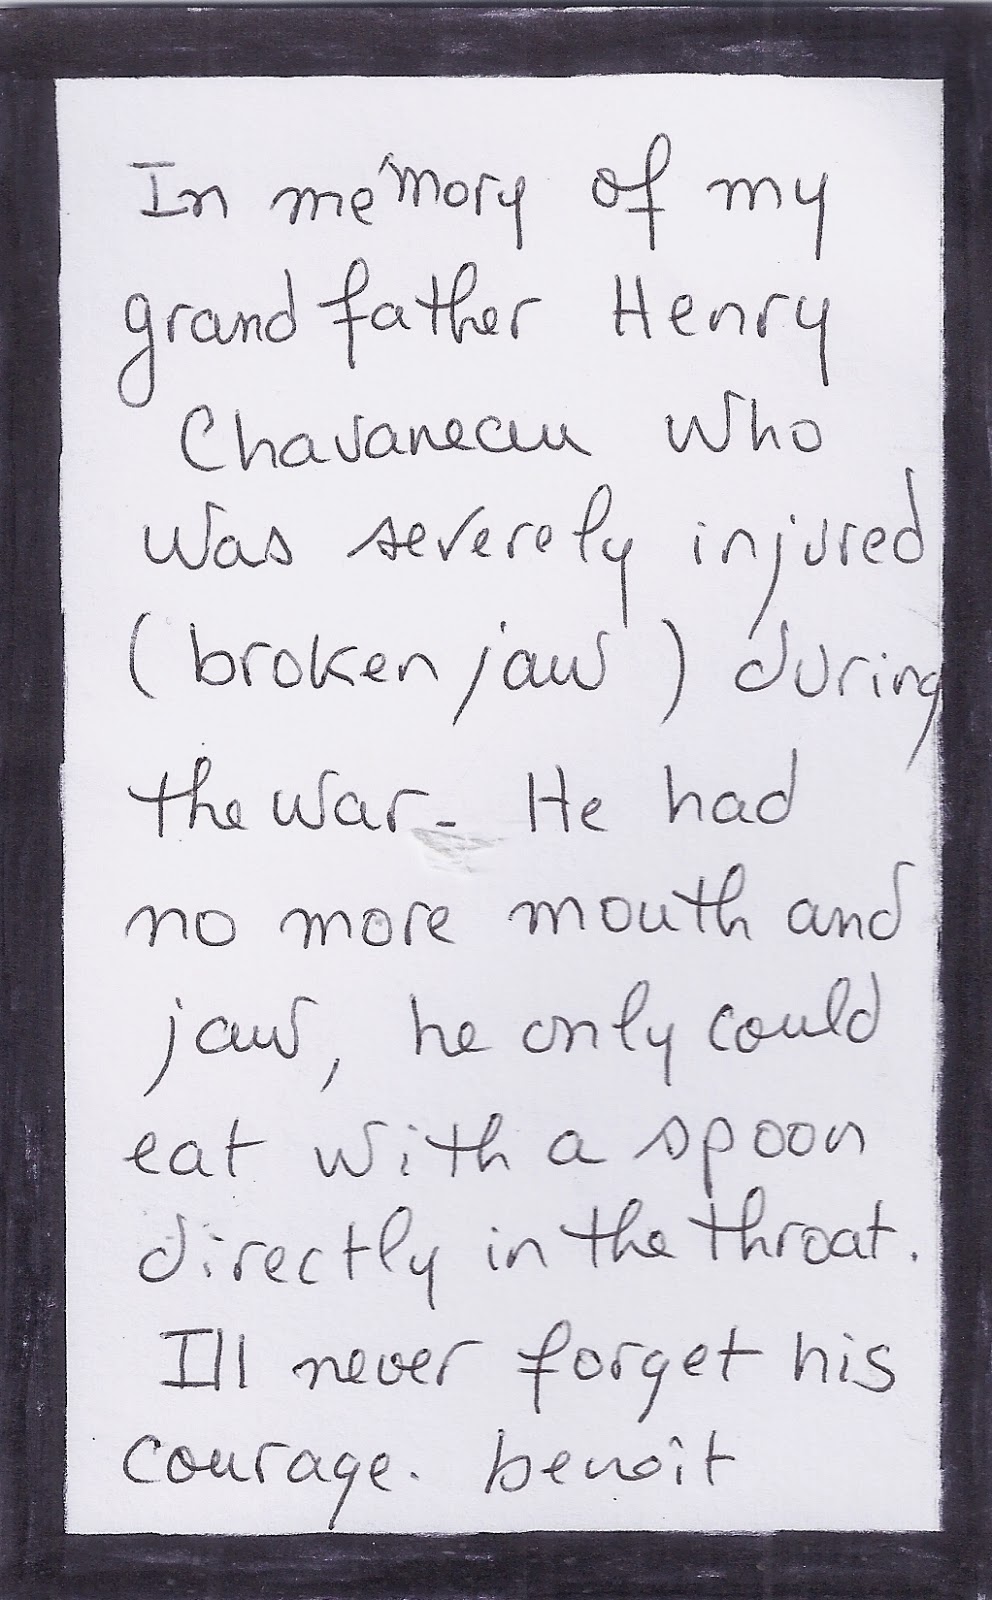 In me'mory of my
grand father Henry
Chavaneau who
was severely injured
(broken jaw) during
the war - He had
no more mouth and
jaw, he only could
eat with a spoon
directly in the throat.
Ill never forget his
courage. benoît